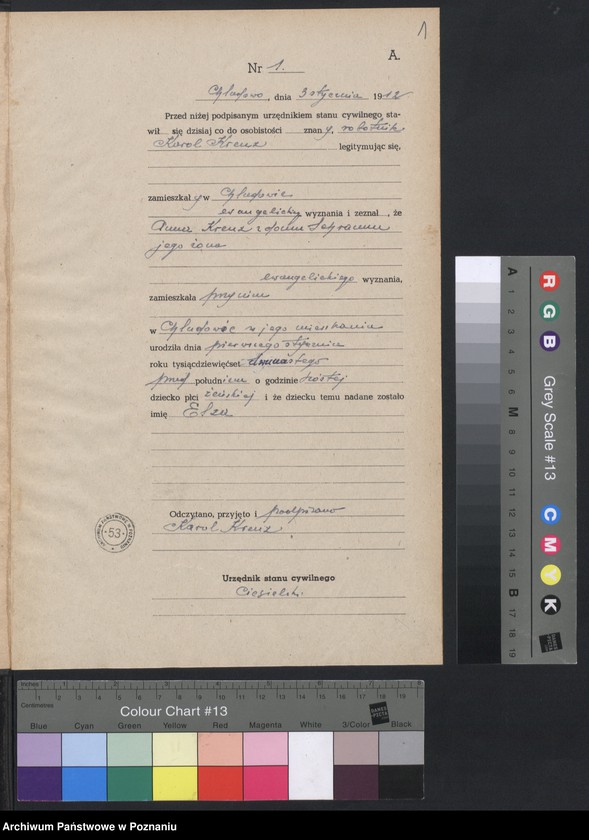 1
A.
Nr 1.
Chludowo, dnia 3 stycznia 1912
Przed niżej podpisanym urzędnikiem stanu cywilnego sta-
wił się dzisiaj co do osobistości znany, robotnik
Karol Krenz legitymując się,
zamieszkały w Chludowie
ewangelickiego wyznania i zeznał, że
Anna Krenz z domu
jego żona
ewangelickiego wyznania,
zamieszkała przy nim
w Chludowie w jego mieszkaniu
urodziła dnia pierwszego stycznia
roku tysiącdziewięćset dwunastego
przed południem o godzinie szóstej
dziecko płci żeńskiej i że dziecku temu nadane zostało
imię Elza
Odczytano, przyjęto i podpisano
Karol Krenz
ARCHIWUM PAŃSTWOWE W POZNANIU
53
Urzędnik stanu cywilnego
Ciesielski
Inches 1 2 3 4 5 6 7 8
Centimetres 1 2 3 4 5 6 7 8 9 10 11 12 13 14 15 16 17 18 19
Colour Chart #13
DANES PICTA
Blue Cyan Green Yellow Red Magenta White 3/Color Black
A 1 2 3 4 5 6 M 8 9 10 11 12 13 14 15 B 17 18 19
R G B
Grey Scale #13
C M Y K
DANES PICTA
Archiwum Państwowe w Poznaniu